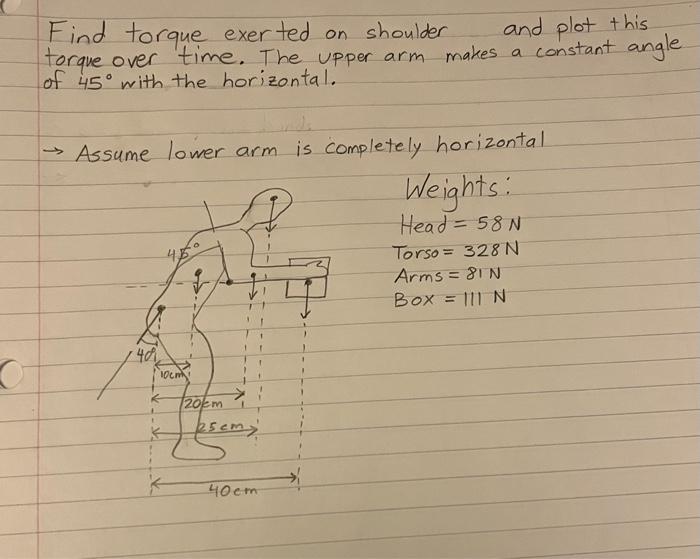 Find torque exerted on shoulder and plot this
torque over time. The upper arm makes a constant angle
of 45° with the horizontal.
→ Assume lower arm is completely horizontal
Weights:
Head = 58 N
Torso = 328 N
Arms = 81 N
Box = 111 N
45°
40°
10cm
20cm
25cm
40cm